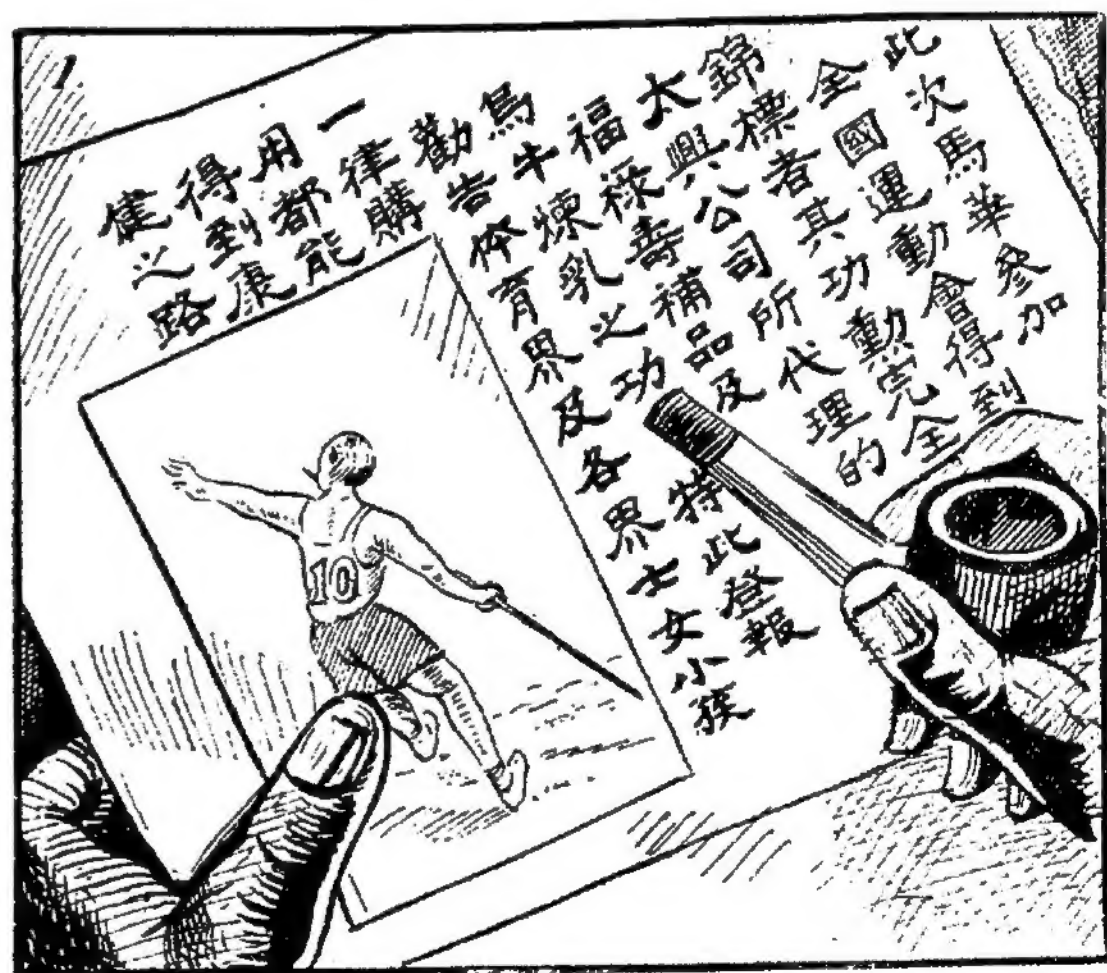 此次馬華參加
全國運動會得到
錦標者其功勳完全
太興公司所代理的
福祿壽補品及
烏牛煉乳之功特此登報
勸告体育界及各界士女小孩
一律購
用都能
得到康
健之路
10